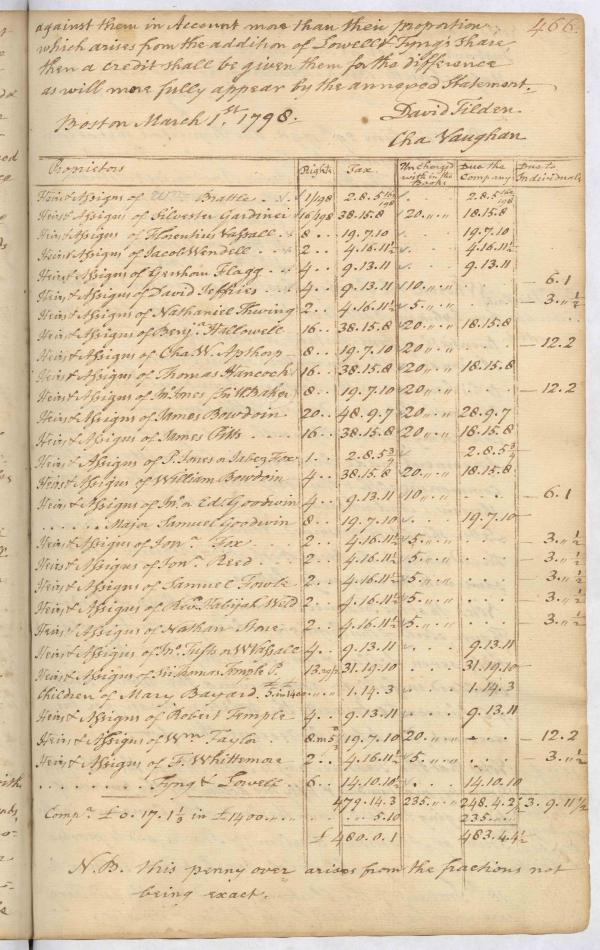 466.
against them in Account more than their proportion
which arises from the addition of Lowell & Tyng's Share,
then a credit shall be given them for the difference
as will more fully appear by the annexed Statement.
Boston March 1st. 1798. David Tilden
Cha Vaughan
Proprietors Rights Tax. Uncharged with in the Books Due the Company Due to Individuals
Heirs & Assigns of Wm Brattle 1/198 2.8.5 2.8.5
Heirs & Assigns of Silvester Gardiner 16/198 38.15.8 20 18.15.8
Heirs & Assigns of Florentius Vassall 8 19.7.10 19.7.10
Heirs & Assigns of Jacob Wendell 2 4.16.11½ 4.16.11½
Heirs & Assigns of Gershom Flagg 4 9.13.11 9.13.11
Heirs & Assigns of David Jeffries 4 9.13.11 10 6.1
Heirs & Assigns of Nathaniel Thwing 2 4.16.11½ 5 3.½
Heirs & Assigns of Benja Hallowell 16 38.15.8 20 18.15.8
Heirs & Assigns of Cha. W. Apthorp 8 19.7.10 20 12.2
Heirs & Assigns of Thomas Hancock 16 38.15.8 20 18.15.8
Heirs & Assigns of Jno Jones for W. Baker 8 19.7.10 20 12.2
Heirs & Assigns of James Bowdoin 20 48.9.7 20 28.9.7
Heirs & Assigns of James Pitts 16 38.15.8 20 18.15.8
Heirs & Assigns of P. Jones or Jabez Fox 1 2.8.5¾ 2.8.5¾
Heirs & Assigns of William Bowdoin 4 38.15.8 20 18.15.8
Heirs & Assigns of Jno or Ed. Goodwin 4 9.13.11 10 6.1
Major Samuel Goodwin 8 19.7.10 19.7.10
Heirs & Assigns of Jona. Fox 2 4.16.11½ 5 3.½
Heirs & Assigns of Jona. Reed 2 4.16.11½ 5 3.½
Heirs & Assigns of Samuel Fowle 2 4.16.11½ 5 3.½
Heirs & Assigns of Revd. Habijah Weld 2 4.16.11½ 5 3.½
Heirs & Assigns of Nathan Stone 2 4.16.11½ 5 3.½
Heirs & Assigns of Jno. Tufts or W. Vassall 4 9.13.11 9.13.11
Heirs & Assigns of Sir Thomas Temple P. 31.19.10 31.19.10
Children of Mary Bayard 1.14.3 1.14.3
Heirs & Assigns of Robert Temple 4 9.13.11 9.13.11
Heirs & Assigns of Wm Taylor 19.7.10 20 12.2
Heirs & Assigns of T. Whittemore 2 4.16.11½ 5 3.½
Tyng & Lowell 6 14.10.10½ 14.10.10
479.14.3 235 248.4.2½ 3.9.11½
Compa. £0.17.1½ in £1400 5.10 235
£480.0.1 483.4.4½
N.B. this penny over arises from the fractions not
being exact.